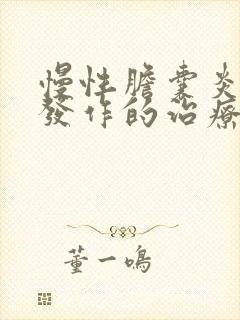 慢性膽囊炎
發作的治療
董一鳴